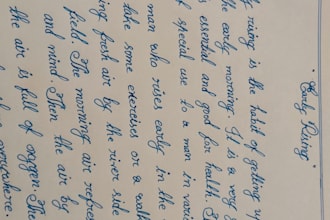 "Early Rising"
rising is the habit of getting
the early morning. It is a very
is essential and good for health.
of special use to a man in
man who rises early in the
take some exercises or a walk
fresh air by the river side
field. The morning air
and mind. Then the air by
the air is full of oxygen. The